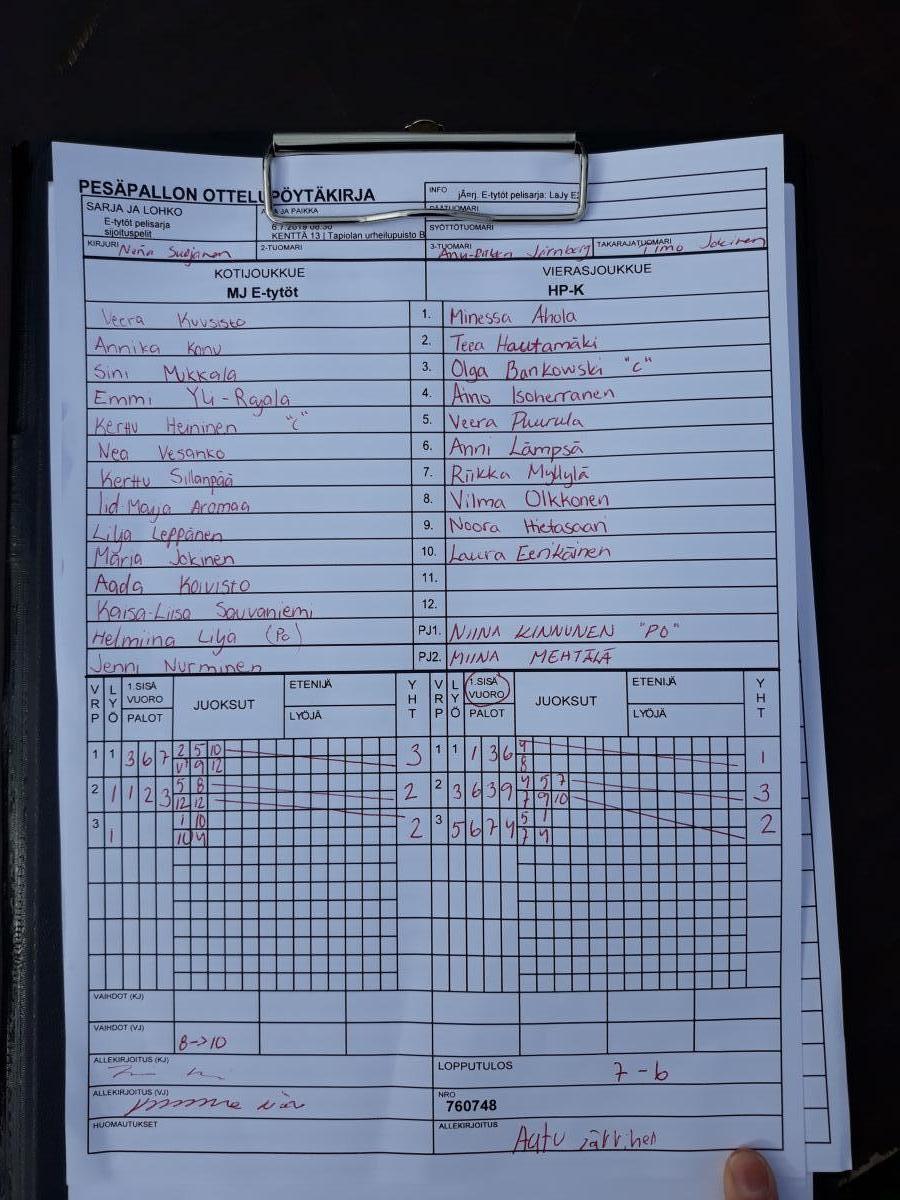 PESÄPALLON OTTELUPÖYTÄKIRJA
INFO jÃ¤rj. E-tytöt pelisarja: LaJy E
SARJA JA LOHKO
E-tytöt pelisarja
sijoituspelit
JA PAIKKA
6.7.2019 08:30
KENTTÄ 13 | Tapiolan urheilupuisto B
PÄÄTUOMARI
SYÖTTÖTUOMARI
KIRJURI
2-TUOMARI
3-TUOMARI
TAKARAJATUOMARI Timo Jokinen
KOTIJOUKKUE VIERASJOUKKUE
MJ E-tytöt HP-K
Veera Kuusisto 1. Minessa Ahola
Annika Konu 2. Teea Hautamäki
Sini Mukkala 3. Olga Bankowski "C"
Emmi Yli-Rajala 4. Aino Isoherranen
Kerttu Heininen "C" 5. Veera Puurula
Nea Vesanko 6. Anni Lämpsä
Kerttu Sillanpää 7. Riikka Myllylä
Iid-Marja Aromaa 8. Vilma Olkkonen
Lilja Leppänen 9. Noora Hietasaari
Maria Jokinen 10. Laura Eerikäinen
Aada Koivisto 11.
Kaisa-Liisa Sauvaniemi 12.
Helmiina Lilja (Po) PJ1. NIINA KINNUNEN "PO"
Jenni Nurminen PJ2. MIINA MEHTÄLÄ
VRP LYÖ 1.SISÄ VUORO PALOT JUOKSUT ETENIJÄ LYÖJÄ YHT VRP LYÖ 1.SISÄ VUORO PALOT JUOKSUT ETENIJÄ LYÖJÄ YHT
1 1 3 6 7 2 5 10 3 1 1 1 3 6 4 1
9 12 8
2 1 1 2 3 5 8 2 2 3 6 3 9 4 5 7 3
12 12 7 9 10
3 1 1 10 2 3 5 6 7 4 5 1 2
10 4 7 4
VAIHDOT (KJ)
VAIHDOT (VJ) 8->10
ALLEKIRJOITUS (KJ)
LOPPUTULOS 7-6
ALLEKIRJOITUS (VJ)
NRO
760748
HUOMAUTUKSET
ALLEKIRJOITUS Aatu